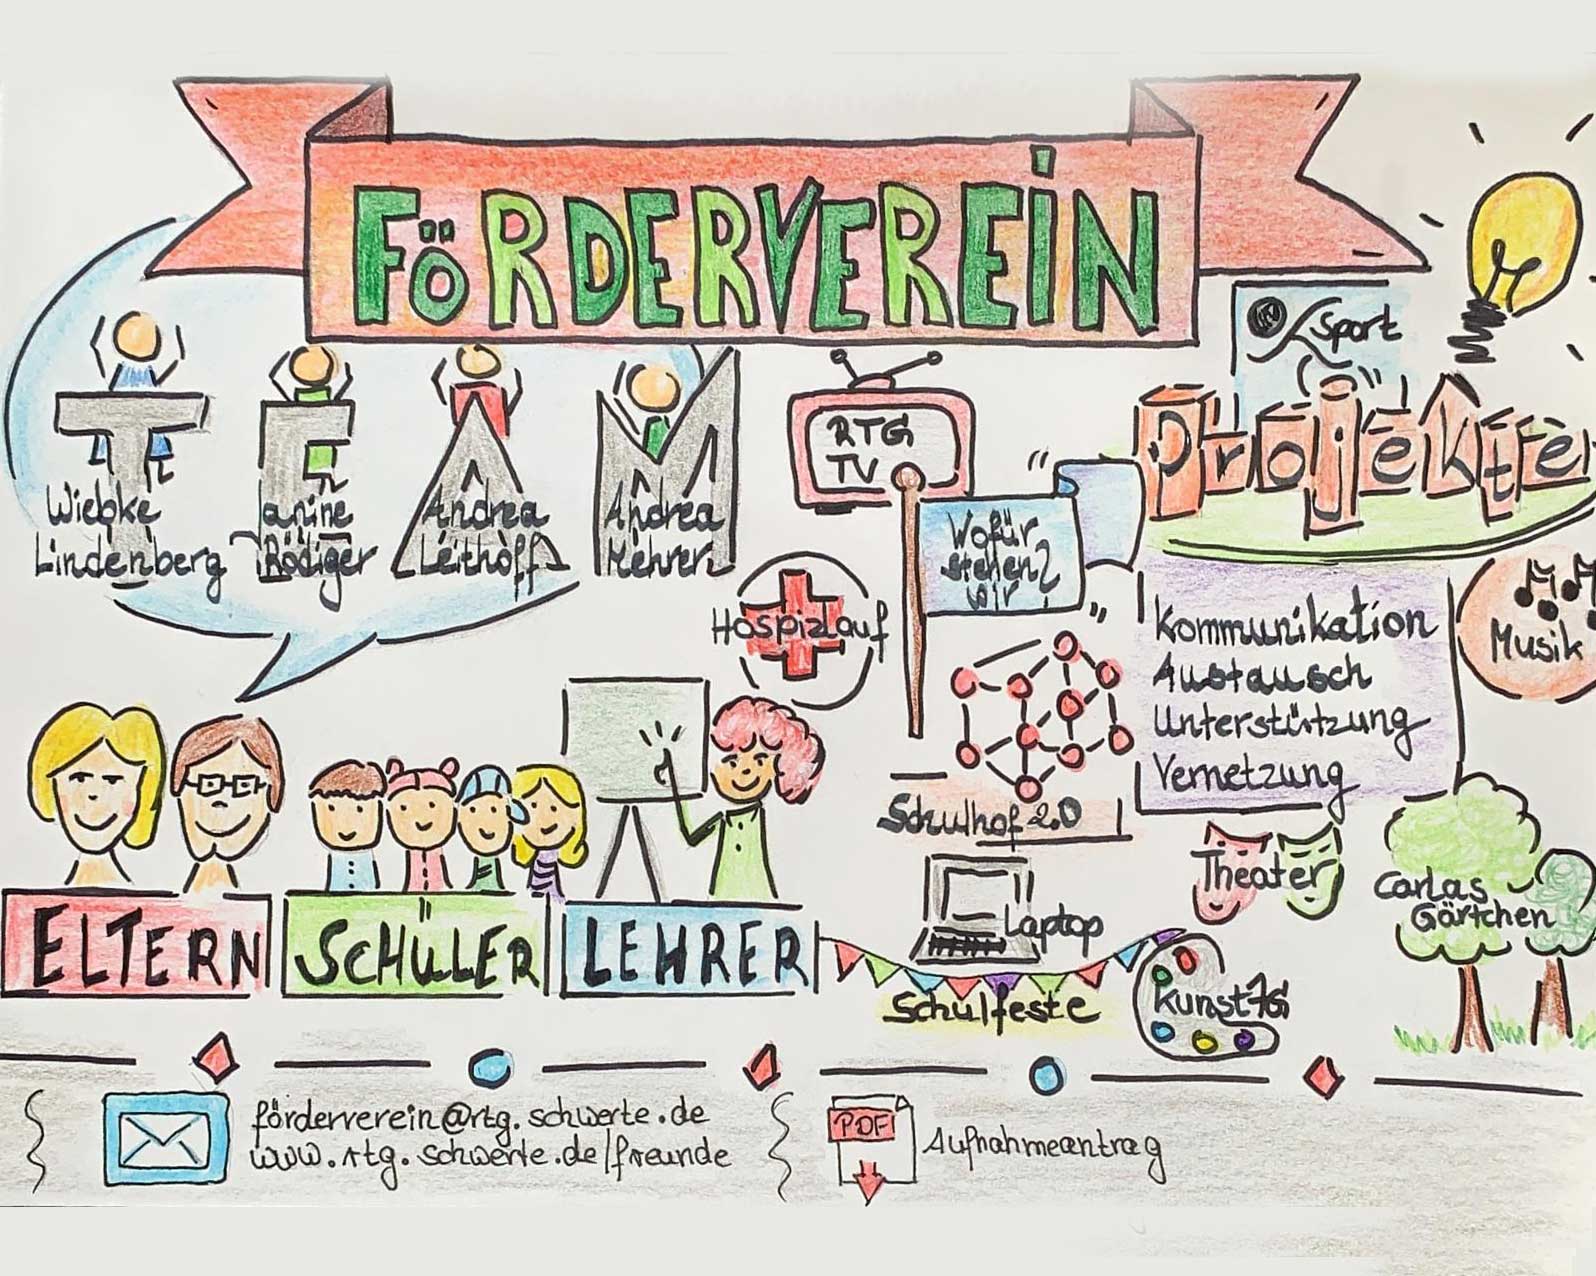 FÖRDERVEREIN
TEAM
Wiebke
Lindenberg
Janine
Rödiger
Andrea
Leithoff
Andrea
Mehrer
RTG
TV
Sport
Projekte
Wofür
stehen
wir
?
Hospizlauf
Kommunikation
Austausch
Unterstützung
Vernetzung
Musik
Schulhof 2.0
Theater
Carlas
Görtchen
Laptop
ELTERN
SCHÜLER
LEHRER
Schulfeste
Kunst AG
förderverein@rtg.schwerte.de
www.rtg.schwerte.de/freunde
PDF
Aufnahmeantrag